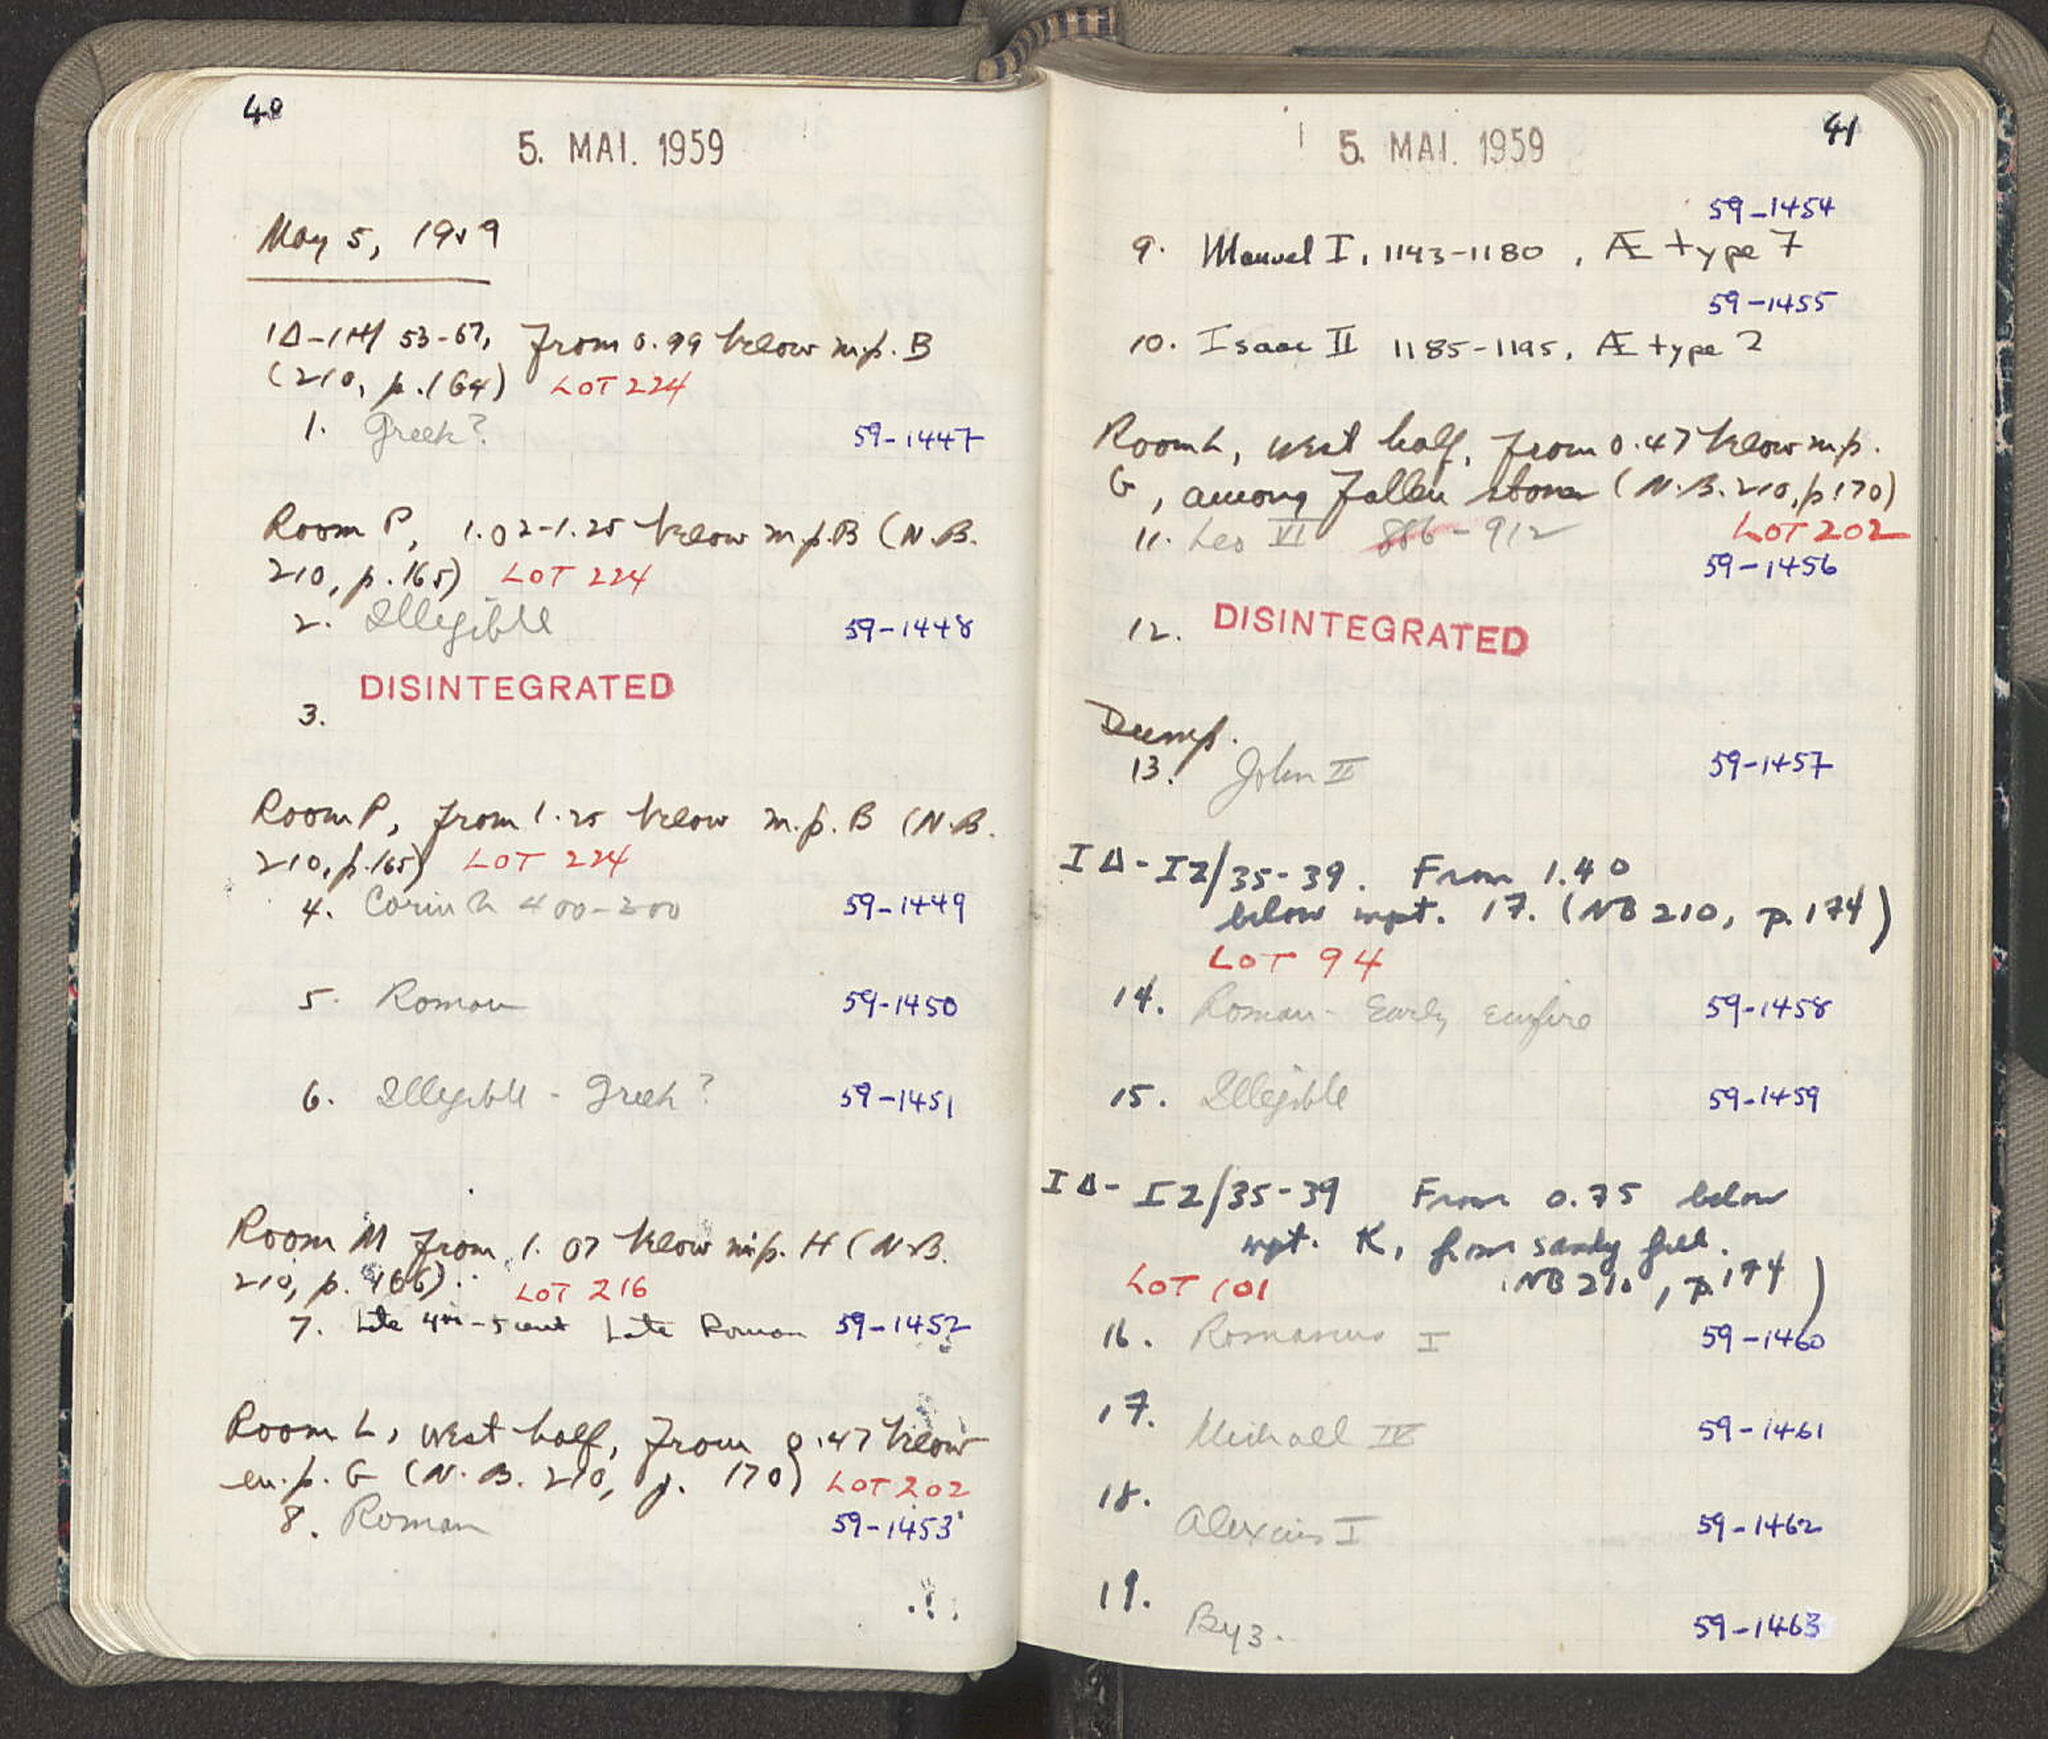 40
5. MAI. 1959
May 5, 1959
ΙΔ-ΙΗ/ 53-67, from 0.99 below m.p. B
(210, p.164) LOT 224
1. Greek? 59-1447
Room P, 1.02-1.25 below m.p. B (N.B.
210, p.165) LOT 224
2. Illegible 59-1448
DISINTEGRATED
3.
Room P, from 1.25 below m.p. B (N.B.
210, p.165) LOT 224
4. Corinth 400-200 59-1449
5. Roman 59-1450
6. Illegible - Greek? 59-1451
Room M from 1.07 below m.p. H (N.B.
210, p. 166). LOT 216
7. Late 4th-5 cent Late Roman 59-1452
Room L, west half, from 0.47 below
m.p. G (N.B. 210, p. 170) LOT 202
8. Roman 59-1453
41
5. MAI. 1959
59-1454
9. Manuel I, 1143-1180, Æ type 7
59-1455
10. Isaac II 1185-1195, Æ type 2
Room L, west half, from 0.47 below m.p.
G, among fallen stones (N.B. 210, p.170)
11. Leo VI 886-912 LOT 202
59-1456
12. DISINTEGRATED
Dump.
13. John II 59-1457
ΙΔ-ΙΖ/35-39. From 1.40
below mpt. 17. (NB 210, p.174)
LOT 94
14. Roman - Early empire 59-1458
15. Illegible 59-1459
ΙΔ-ΙΖ/35-39 From 0.75 below
mpt. K, from sandy fill.
LOT 101 NB 210, p.174)
16. Romanus I 59-1460
17. Michael IV 59-1461
18. Alexius I 59-1462
19. Byz. 59-1463